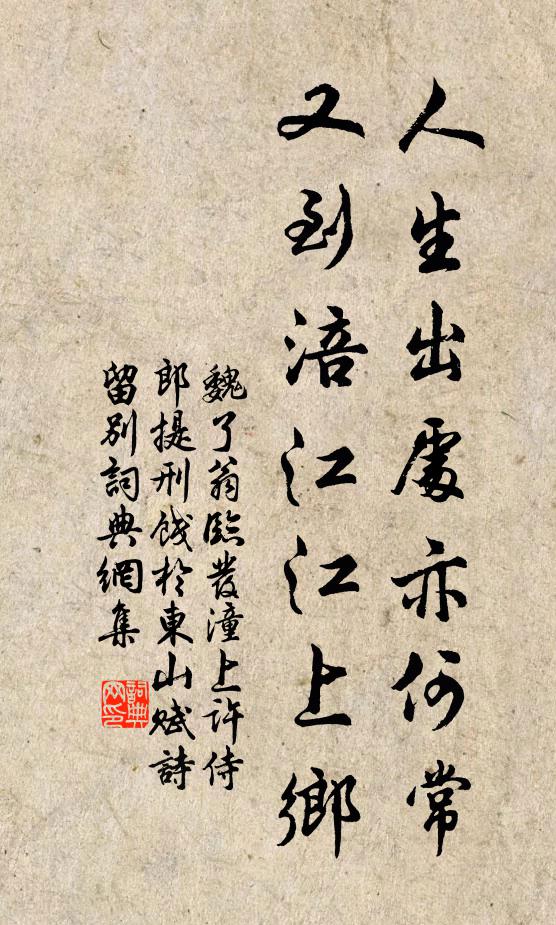 人生出處亦何常
又到涪江江上鄉
魏了翁臨發潼上許侍
郎提刑餞於東山賦詩
留別詞典網集
詞典網印